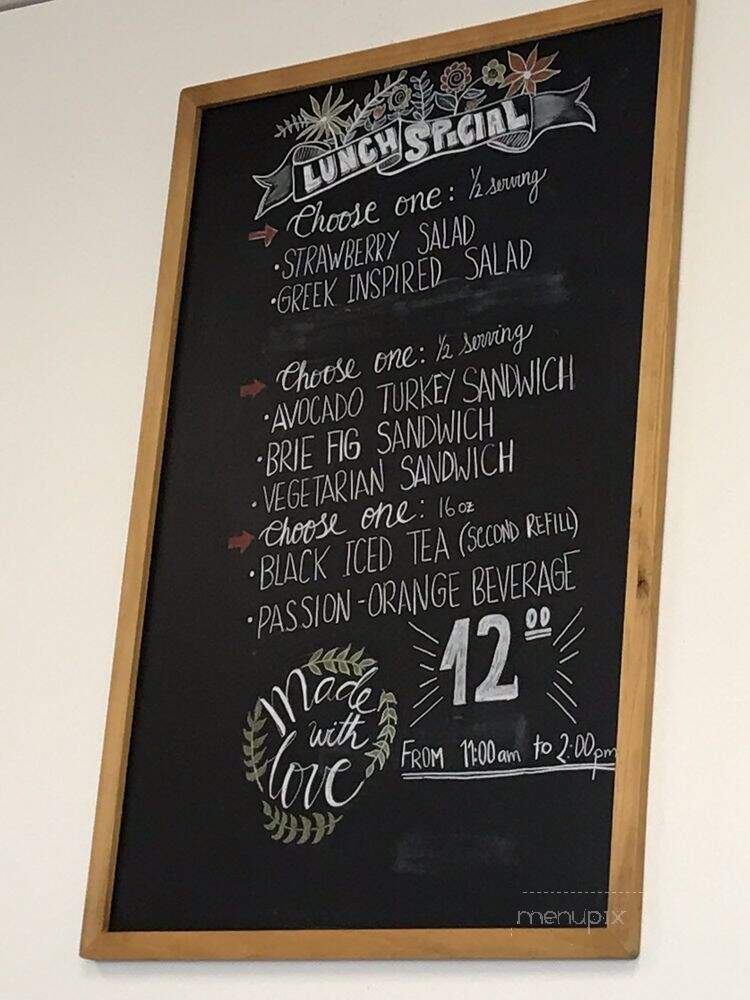 LUNCH SPECIAL
Choose one: 1/2 serving
• STRAWBERRY SALAD
• GREEK INSPIRED SALAD
Choose one: 1/2 serving
• AVOCADO TURKEY SANDWICH
• BRIE FIG SANDWICH
• VEGETARIAN SANDWICH
Choose one: 16 oz
• BLACK ICED TEA (SECOND REFILL)
• PASSION-ORANGE BEVERAGE
12 00
Made
with
love
FROM 11:00am to 2:00pm
menupix